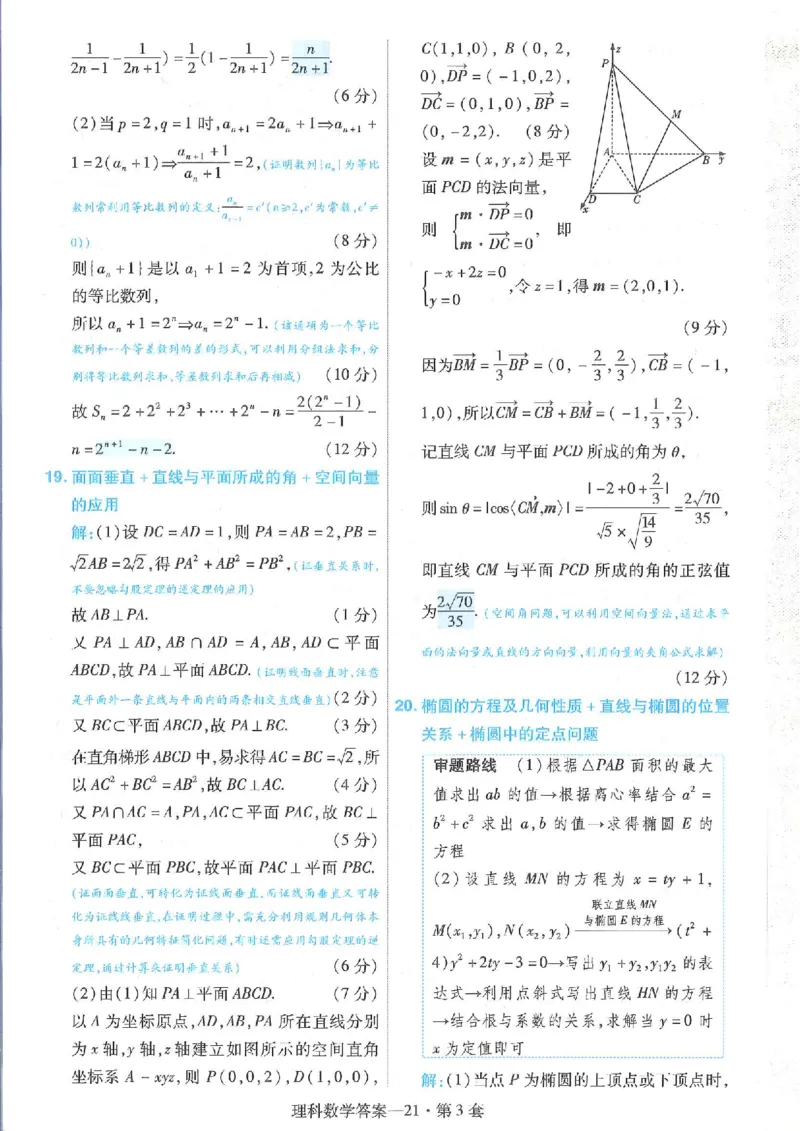 1/(2n-1) - 1/(2n+1)) = 1/2(1 - 1/(2n+1)) = n/(2n+1).
(6分)
(2)当p=2,q=1时,aₙ₊₁=2aₙ+1⇒aₙ₊₁+
1=2(aₙ+1)⇒(aₙ₊₁+1)/(aₙ+1)=2,(证明数列{aₙ}为等比
数列常利用等比数列的定义:aₙ/aₙ₋₁=c′(n≥2,c′为常数,c′≠
0))
(8分)
则{aₙ+1}是以a₁+1=2为首项,2为公比
的等比数列,
所以aₙ+1=2ⁿ⇒aₙ=2ⁿ-1.(该通项为一个等比
数列和一个等差数列的差的形式,可以利用分组法求和,分
别得等比数列求和、等差数列求和后再相减) (10分)
故Sₙ=2+2²+2³+⋯+2ⁿ-n=2(2ⁿ-1)/(2-1)-
n=2ⁿ⁺¹-n-2. (12分)
19.面面垂直+直线与平面所成的角+空间向量
的应用
解:(1)设DC=AD=1,则PA=AB=2,PB=
√2AB=2√2,得PA²+AB²=PB²,(证垂直关系时,
不要忽略勾股定理的逆定理的应用)
故AB⊥PA. (1分)
又PA⊥AD,AB∩AD=A,AB,AD⊂平面
ABCD,故PA⊥平面ABCD.(证明线面垂直时,注意
是平面外一条直线与平面内的两条相交直线垂直)(2分)
又BC⊂平面ABCD,故PA⊥BC. (3分)
在直角梯形ABCD中,易求得AC=BC=√2,所
以AC²+BC²=AB²,故BC⊥AC. (4分)
又PA∩AC=A,PA,AC⊂平面PAC,故BC⊥
平面PAC, (5分)
又BC⊂平面PBC,故平面PAC⊥平面PBC.
(证面面垂直,可转化为证线面垂直,而证线面垂直又可转
化为证线线垂直,在证明过程中,需充分利用规则几何体本
身所具有的几何特征简化问题,有时还常应用勾股定理的逆
定理,通过计算来证明垂直关系) (6分)
(2)由(1)知PA⊥平面ABCD. (7分)
以A为坐标原点,AD,AB,PA所在直线分别
为x轴,y轴,z轴建立如图所示的空间直角
坐标系A-xyz,则P(0,0,2),D(1,0,0),
C(1,1,0),B(0,2,
0),DP→=(-1,0,2),
DC→=(0,1,0),BP→=
(0,-2,2). (8分)
设m=(x,y,z)是平
面PCD的法向量,
z
P
M
A
B y
D
C
x
则{m·DP→=0
m·DC→=0, 即
{-x+2z=0
y=0 ,令z=1,得m=(2,0,1).
(9分)
因为BM→=1/3BP→=(0,-2/3,2/3),CB→=(-1,
1,0),所以CM→=CB→+BM→=(-1,1/3,2/3).
记直线CM与平面PCD所成的角为θ,
则sin θ=|cos⟨CM→,m⟩|=|-2+0+2/3|/(√5×√(14/9))=2√70/35,
即直线CM与平面PCD所成的角的正弦值
为2√70/35.(空间角问题,可以利用空间向量法,通过求平
面的法向量或直线的方向向量,利用向量的夹角公式求解)
(12分)
20.椭圆的方程及几何性质+直线与椭圆的位置
关系+椭圆中的定点问题
审题路线 (1)根据△PAB面积的最大
值求出ab的值→根据离心率结合a²=
b²+c²求出a,b的值→求得椭圆E的
方程
(2)设直线MN的方程为x=ty+1,
联立直线MN
与椭圆E的方程
M(x₁,y₁),N(x₂,y₂)→(t²+
4)y²+2ty-3=0→写出y₁+y₂,y₁y₂的表
达式→利用点斜式写出直线HN的方程
→结合根与系数的关系,求解当y=0时
x为定值即可
解:(1)当点P为椭圆的上顶点或下顶点时,
理科数学答案—21·第3套